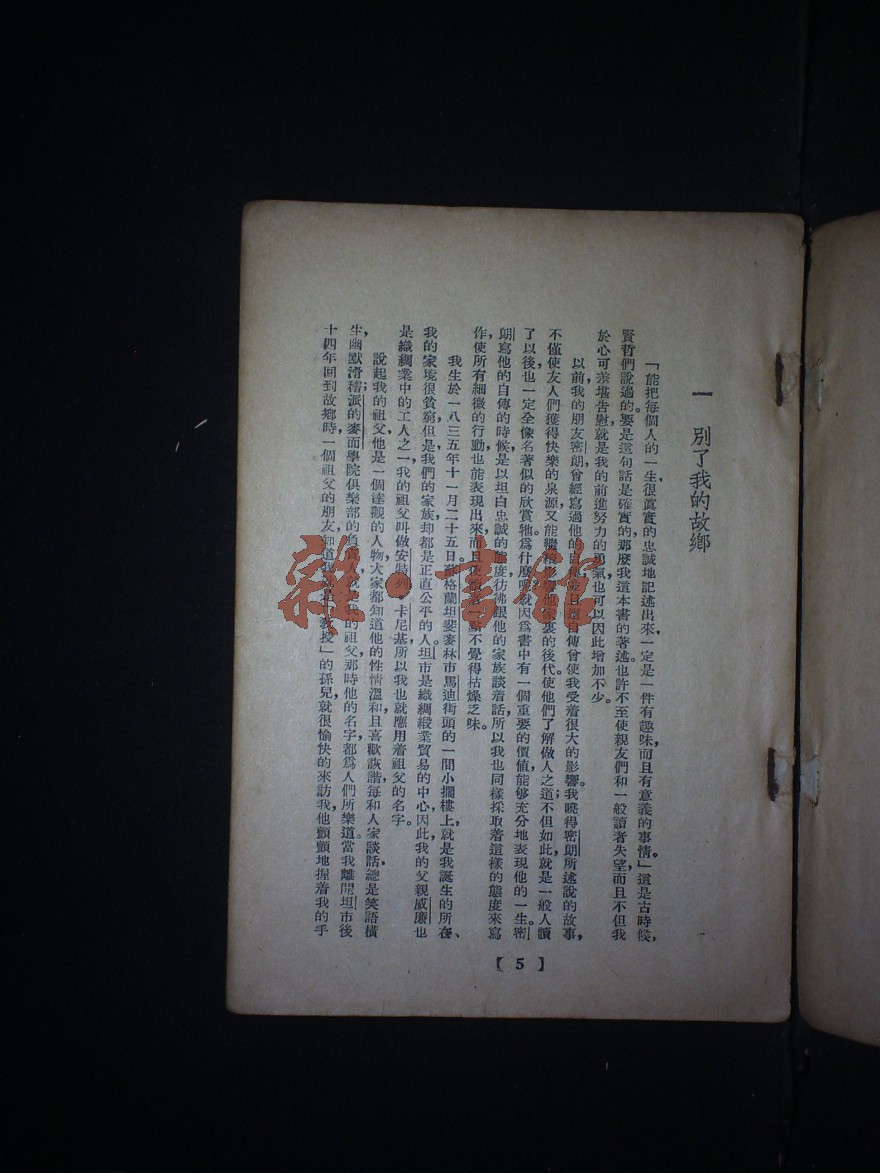 一 別了我的故鄉
「能把每個人的一生,很眞實的忠誠地記述出來,一定是一件有趣味,而且有意義的事情。」這是古時候,
賢哲們說過的。要是這句話是確實的,那麼我這本書的著述,也許不至使親友們和一般讀者失望,而且不但我
於心可泰堪告慰,就是我的前進努力的勇氣,也可以因此增加不少。
以前,我的朋友密朗曾經寫過他的自傳,並且這自傳曾使我受着很大的影響。我曉得密朗所述說的故事,
不僅使友人們獲得快樂的泉源,又能繼 他家裏的後代,使他們了解做人之道;不但如此,就是一般人讀
了以後,也一定全像名著似的欣賞牠。爲什麼呢?就因爲書中有一個重要的價值,能够充分地表現他的一生。密
朗寫他的自傳的時候,是以坦白忠誠的態度,彷彿跟他的家族談着話,所以我也同樣採取着這樣的態度來寫
作,使所有細微的行動也能表現出來,而且使 不覺得枯燥乏味。
我生於一八三五年十一月二十五日。蘇格蘭坦斐麥林市馬迪街頭的一間小擱樓上,就是我誕生的所在、
我的家境很貧窮,但是我們的家族却都是正直公平的人。坦市是織綢緞業貿易的中心,因此,我的父親威廉也
是織綢業中的工人之一,我的祖父叫做安特列・卡尼基,所以我也就應用着祖父的名字。
說起我的祖父,他是一個達觀的人物,大家都知道他的性情溫和,且喜歡詼諧,每和人家談話,總是笑語橫
生,幽默滑稽派的麥而學院俱樂部的負責 就是我的祖父,那時他的名字都爲人們所樂道。當我離開坦市後
十四年回到故鄉時,一個祖父的朋友,知道我就是「敎授」的孫兒,就很愉快的來訪我,他顫顫地握着我的手
【5】
雜・書館